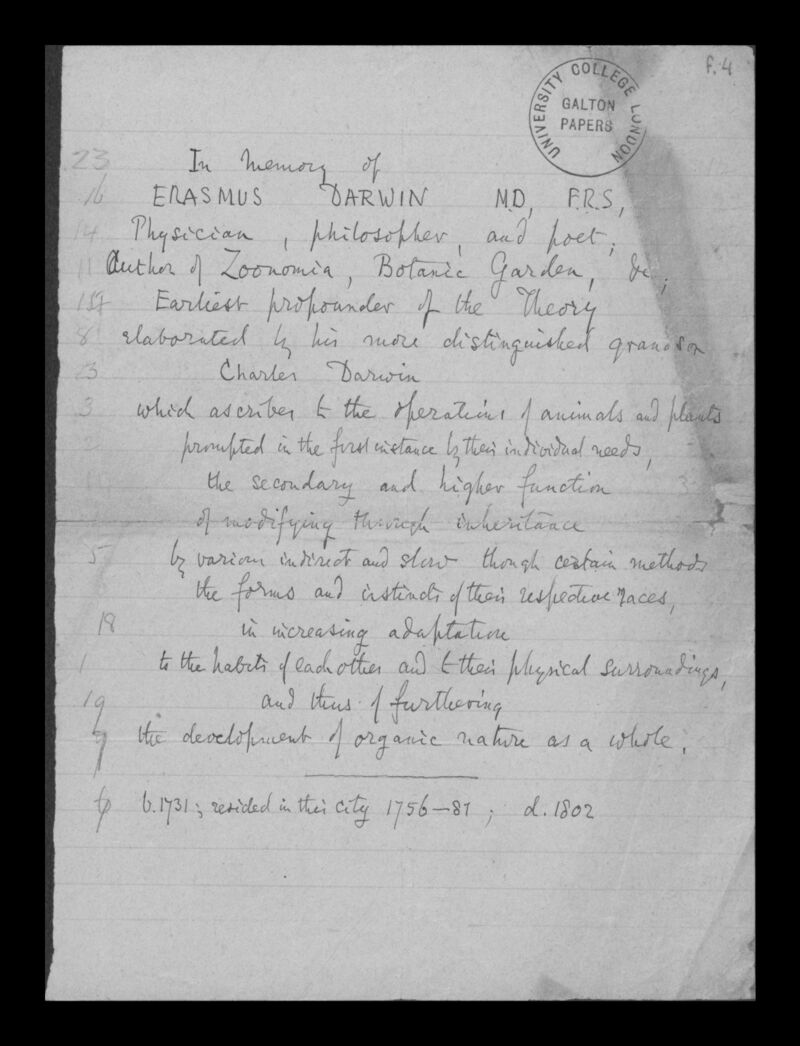 f.4
UNIVERSITY COLLEGE LONDON
GALTON
PAPERS
23 In Memory of
16 ERASMUS DARWIN M.D, F.R.S,
14 Physician, philosopher, and poet;
11 Author of Zoonomia, Botanic Garden, &c;
Earliest propounder of the Theory
8 elaborated by his more distinguished grandson
23 Charles Darwin
3 which ascribes to the operations of animals and plants
prompted in the first instance by their individual needs,
the secondary and higher function
of modifying through inheritance
5 by various indirect and slow though certain methods
the forms and instincts of their respective races,
18 in increasing adaptation
1 to the habits of each other and to their physical surroundings,
19 and thus of furthering
the development of organic nature as a whole.
b. 1731; resided in this city 1756–81; d. 1802